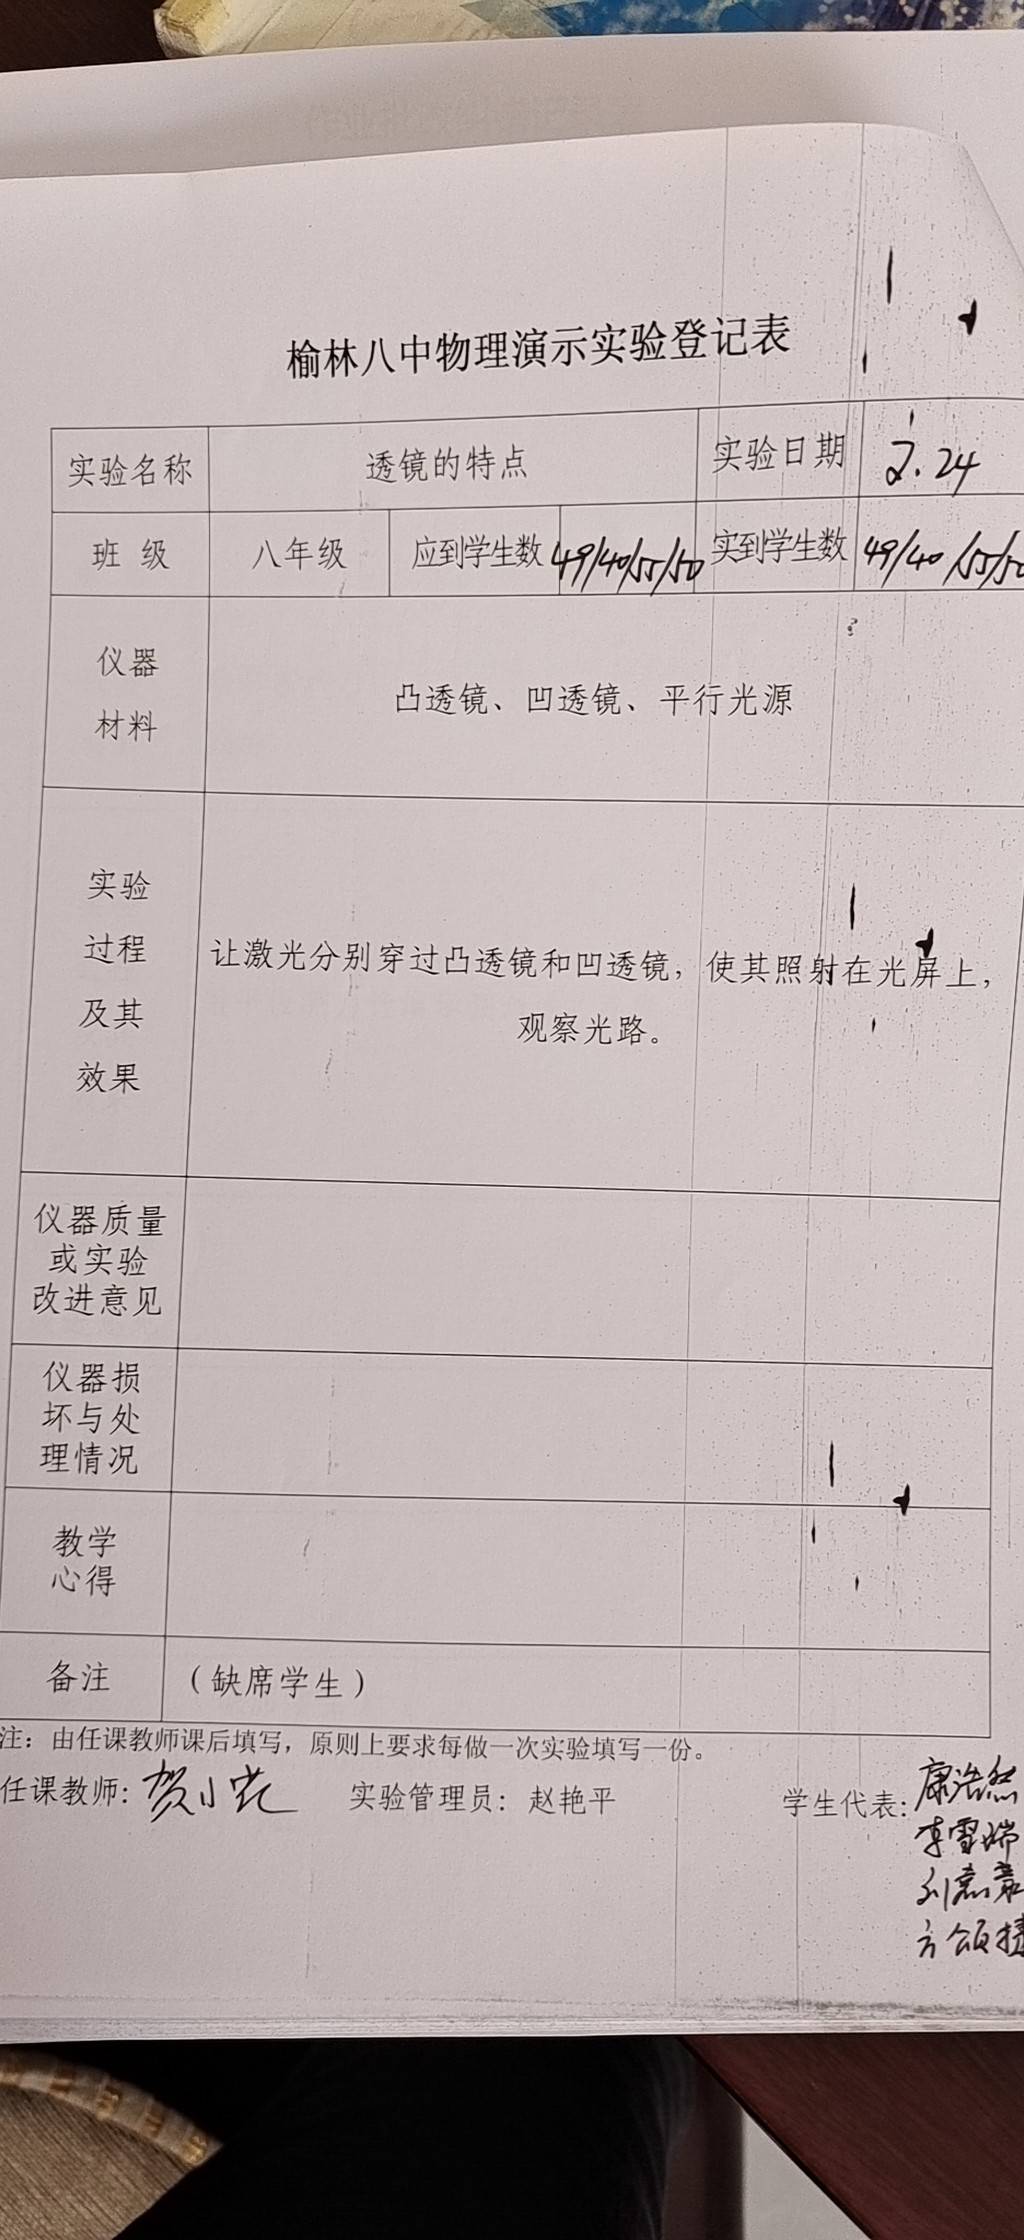 榆林八中物理演示实验登记表
实验名称 透镜的特点 实验日期 2.24
班 级 八年级 应到学生数 49/40/55/50 实到学生数 49/40/55/50
仪器
材料
凸透镜、凹透镜、平行光源
实验
过程
及其
效果
让激光分别穿过凸透镜和凹透镜，使其照射在光屏上，
观察光路。
仪器质量
或实验
改进意见
仪器损
坏与处
理情况
教学
心得
备注 （缺席学生）
注：由任课教师课后填写，原则上要求每做一次实验填写一份。
任课教师：贺小花 实验管理员：赵艳平 学生代表：康浩然
李雪瑞
方颂捷